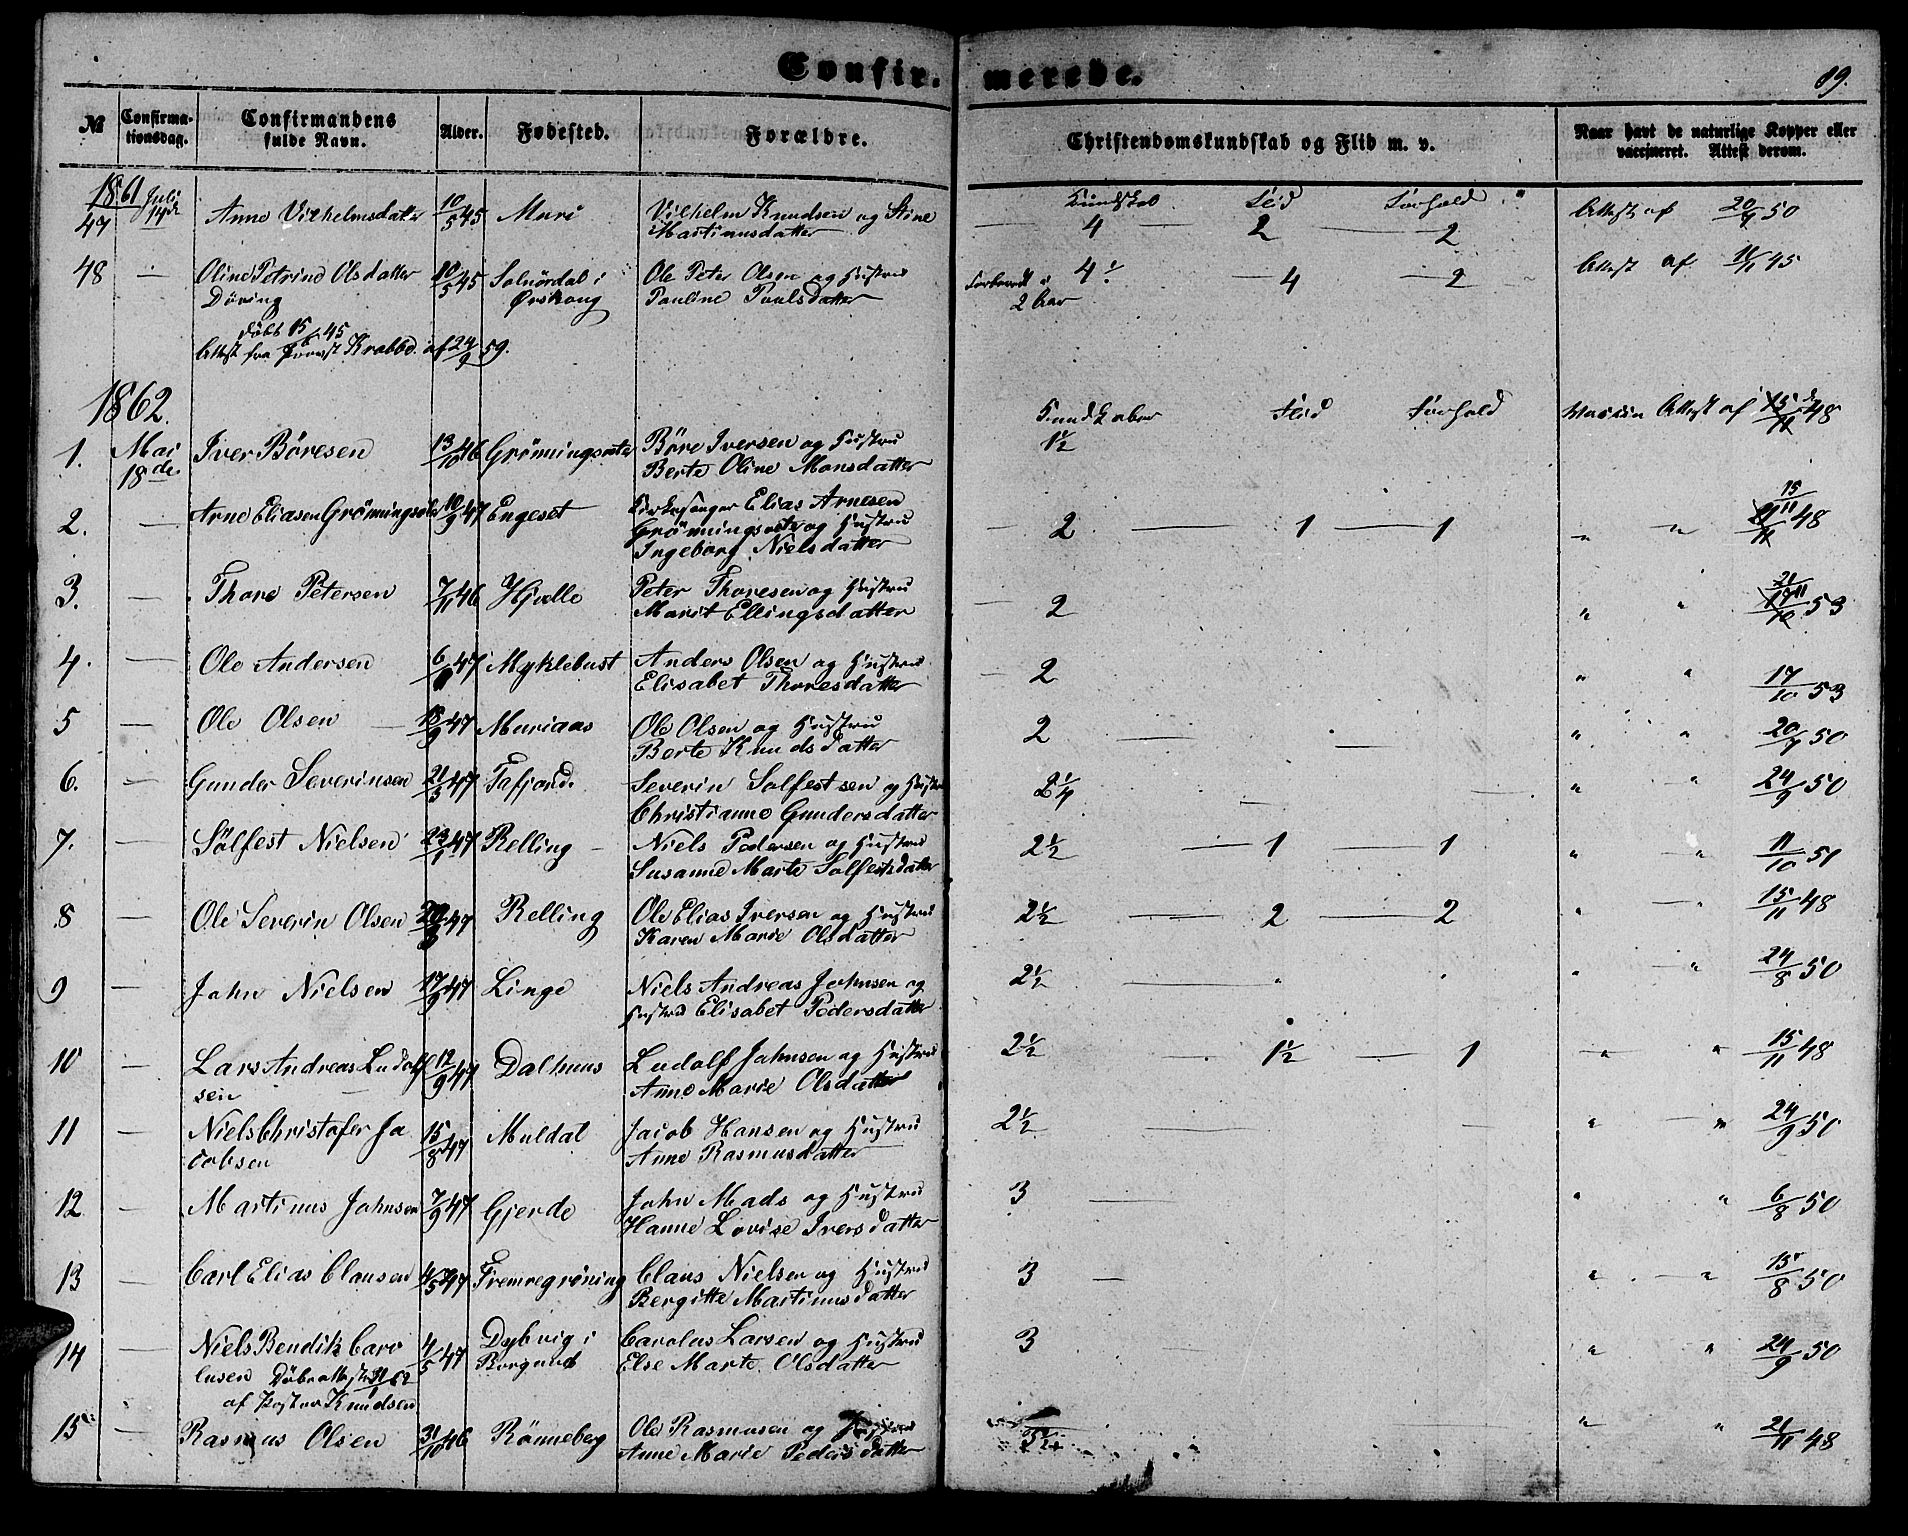 Confir- merede.
89.
№ Confirma-tionsdag. Confirmandens fulde Navn. Alder. Fødested. Forældre. Christendomskundskab og Flid m. v. Naar havt de naturlige Kopper eller vaccineret. Attest derom.
1861 Juli Kundskab Flid Forhold
47 14de Anne Vilhelmsdatter 10/5 45 Muri Vilhelm Knudsen og Stine 4 2 2 Attest af 20/7 50
Martinusdatter
48 — Oline Petrine Olsdatter 10/5 45 Solnördal i Ole Peter Olsen og Hustru 4 4 2 Attest af 11/11 45
Döving Ørskoug Pauline Paulsdatter 2 Aar
döbt 15/6 45
Attest fra Provst Krabbe af 24/9 59.
1862. Kundskaber Flid Forhold
1. Mai 18de Iver Böresen 13/10 46 Grönningsæter Böre Iversen og Hustru 1½ Vaccin Attest af 15/11 48
Berte Oline Monsdatter
2. — Arne Eliasen Grönningsæter 10/9 47 Engeset Kirkesanger Elias Arnesen 2 — 1 — 1 " " 15/11 48
Grönningsæter og Hustru
Ingeborg Nielsdatter
3. — Thore Petersen 7/11 46 Hjelle Peter Thoresen og Hustru 2 " " 21/11 53
Marit Ellingsdatter
4. — Ole Andersen 6/9 47 Myklebust Anders Olsen og Hustru 2 " " 17/10 53
Elisabet Thoresdatter
5 — Ole Olsen 47 Muriaas Ole Olsen og Hustru 2 — " " 20/7 50
Berte Knudsdatter
6. — Gunder Severinsen 21/3 47 Tafjord. Severin Solfestsen og Hustru 2¼ " " 24/9 50
Christianne Gundersdatter
7. — Sölfest Nielsen 23/1 47 Relling — Niels Pedersen og Hustru 2½ — 1 — 1 " " 11/10 51
Susanne Marte Solfestsdatter
8 — Ole Severin Olsen 47 Relling Ole Elias Iversen og Hustru 2½ — 2 — 2 " " 15/11 48
Karen Marie Olsdatter
9 — John Nielsen 17/9 47 Linge Niels Andreas Johnsen og 2½ " " 24/8 50
Hustru Elisabet Pedersdatter
10 — Lars Andreas Ludolf 12/9 47 Dalhuus Ludolf Johnsen og Hustru 2½ 1½ — 1 " " 15/11 48
sen Anne Marie Olsdatter
11 — Niels Christofer Ja 15/8 47 Muldal Jacob Hansen og Hustru 2½ " " 24/9 50
cobsen Anne Rasmusdatter
12 — Martinus Johnsen 7/9 47 Gjerde John Mads og Hustru 3 — " " 6/8 50
Hanne Lovise Iversdatter
13 — Carl Elias Clausen 4/5 47 Fremregröning Claus Nielsen og Hustru 3 — " " 15/8 50
Bergitte Martinusdatter
14 — Niels Bendik Caro 4/5 47 Dybvig i Carolus Larsen og Hustru 3 " " 24/9 50
lusen Döbeattest 62 Borgund Else Marte Olsdatter
af Pastor Knudsen
15 — Rasmus Olsen 31/10 46 Rönneberg Ole Rasmusen og Hustru 3½ " " 21/11 48
Anne Marie Pedersdatter